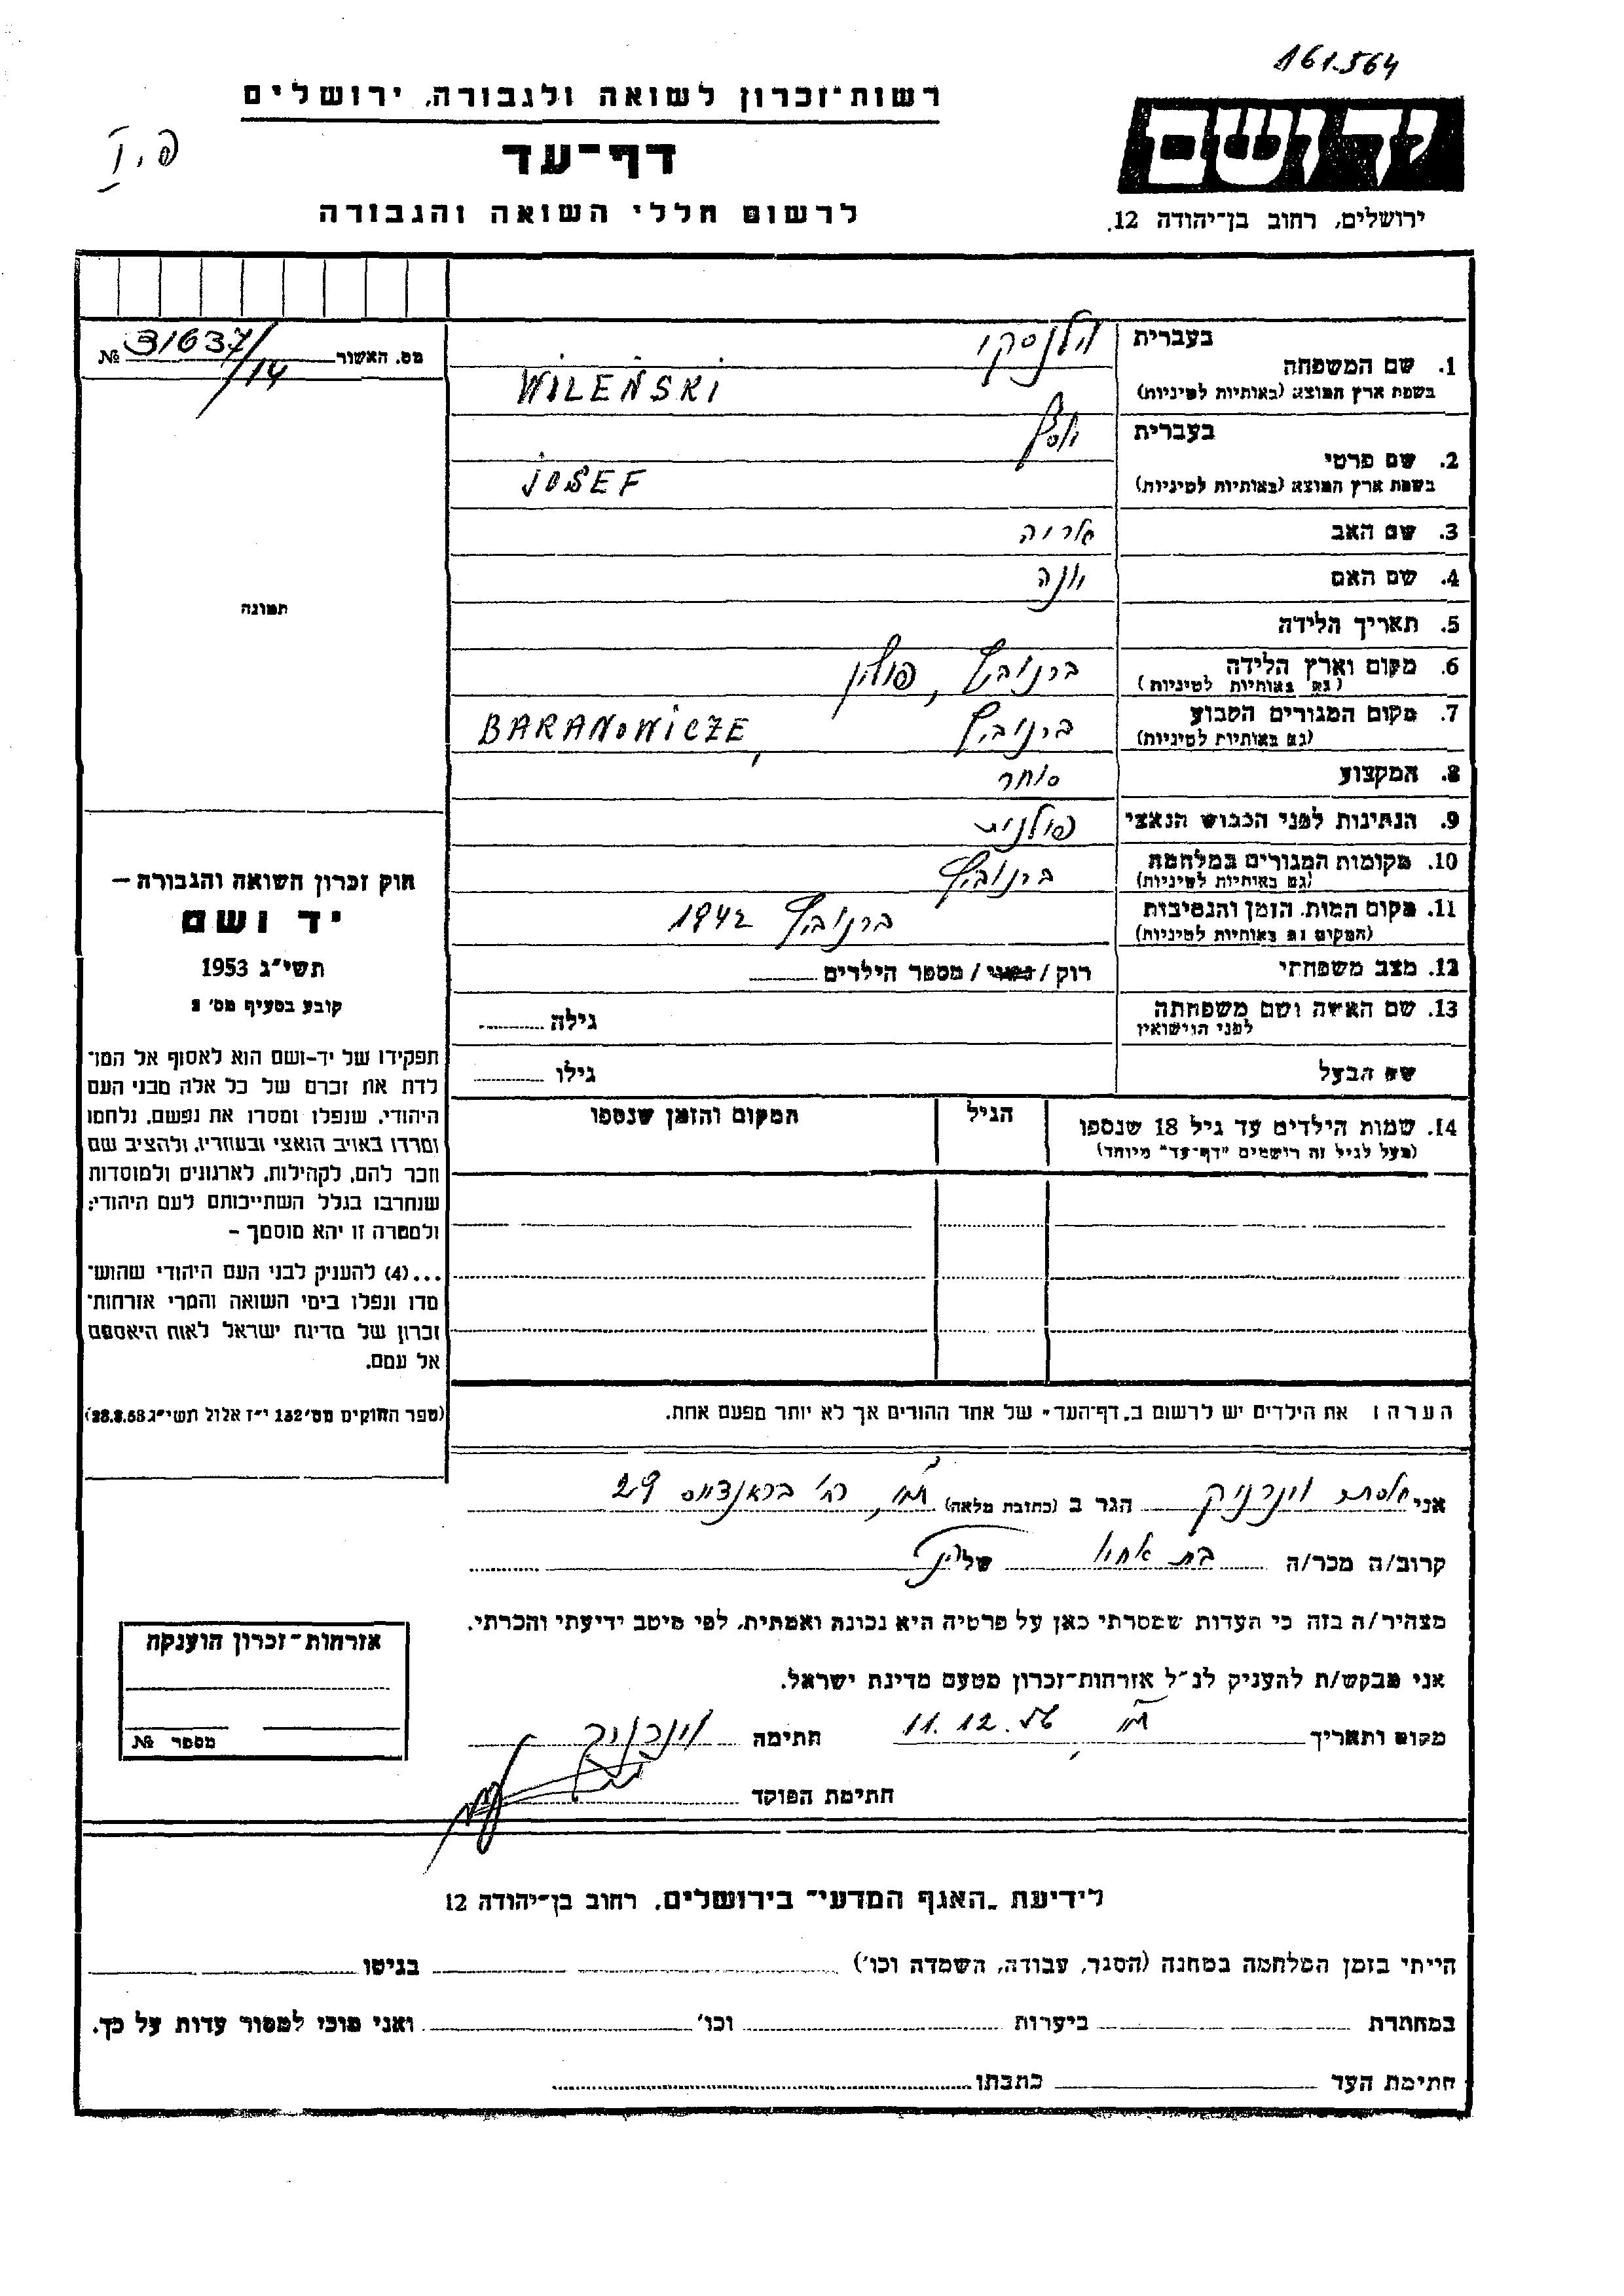 161.564
רשות־זכרון לשואה ולגבורה, ירושלים
דף־עד
לרשום חללי השואה והגבורה
פ.I
יד ושם
ירושלים, רחוב בן־יהודה 12.
מס. האשור 31637/14 №
בעברית וילנסקי
1. שם המשפחה
בשפת ארץ המוצא (באותיות לטיניות) WILEŃSKI
בעברית יוסף
2. שם פרטי
בשפת ארץ המוצא (באותיות לטיניות) JOSEF
3. שם האב אריה
4. שם האם יונה
5. תאריך הלידה
6. מקום וארץ הלידה ברנוביץ, פולין
(גם באותיות לטיניות)
7. מקום המגורים הקבוע ברנוביץ, BARANOWICZE
(גם באותיות לטיניות)
8. המקצוע סוחר
9. הנתינות לפני הכבוש הנאצי פולנית
10. מקומות המגורים במלחמה ברנוביץ
(גם באותיות לטיניות)
11. מקום המות, הזמן והנסיבות ברנוביץ 1942
(המקום גם באותיות לטיניות)
12. מצב משפחתי רוק / נשוי / מספר הילדים
13. שם האשה ושם משפחתה גילה
לפני הנישואין
שם הבעל גילו
14. שמות הילדים עד גיל 18 שנספו הגיל המקום והזמן שנספו
(מעל לגיל זה רושמים "דף־עד" מיוחד)
הערה: את הילדים יש לרשום ב"דף־העד" של אחד ההורים אך לא יותר מפעם אחת.
תמונה
חוק זכרון השואה והגבורה –
יד ושם
תשי"ג 1953
קובע בסעיף מס' 2
תפקידו של יד-ושם הוא לאסוף אל המו־
לדת את זכרם של כל אלה מבני העם
היהודי, שנפלו ומסרו את נפשם, נלחמו
ומרדו באויב הנאצי ובעוזריו, ולהציב שם
וזכר להם, לקהילות, לארגונים ולמוסדות
שנחרבו בגלל השתייכותם לעם היהודי;
ולמטרה זו יהא מוסמך –
...(4) להעניק לבני העם היהודי שהוש־
מדו ונפלו בימי השואה והמרי אזרחות־
זכרון של מדינת ישראל לאות היאספם
אל עמם.
(ספר החוקים מס' 132 י"ז אלול תשי"ג 28.8.53)
אני אסתר וינרניק הגר ב (כתובת מלאה) ת"א, רח' בראנדייס 29
קרוב/ה מכר/ה בת אחיו של
מצהיר/ה בזה כי העדות שמסרתי כאן על פרטיה היא נכונה ואמתית, לפי מיטב ידיעתי והכרתי.
אני מבקש/ת להעניק לנ"ל אזרחות־זכרון מטעם מדינת ישראל.
מקום ותאריך ת"א, 11.12.56 חתימה וינרניק
חתימת הפוקד
אזרחות־זכרון הוענקה
מספר №
לידיעת "האגף המדעי" בירושלים, רחוב בן־יהודה 12
הייתי בזמן המלחמה במחנה (הסגר, עבודה, השמדה וכו') בגיטו
במחתרת ביערות וכו' ואני מוכן למסור עדות על כך.
חתימת העד כתבתו